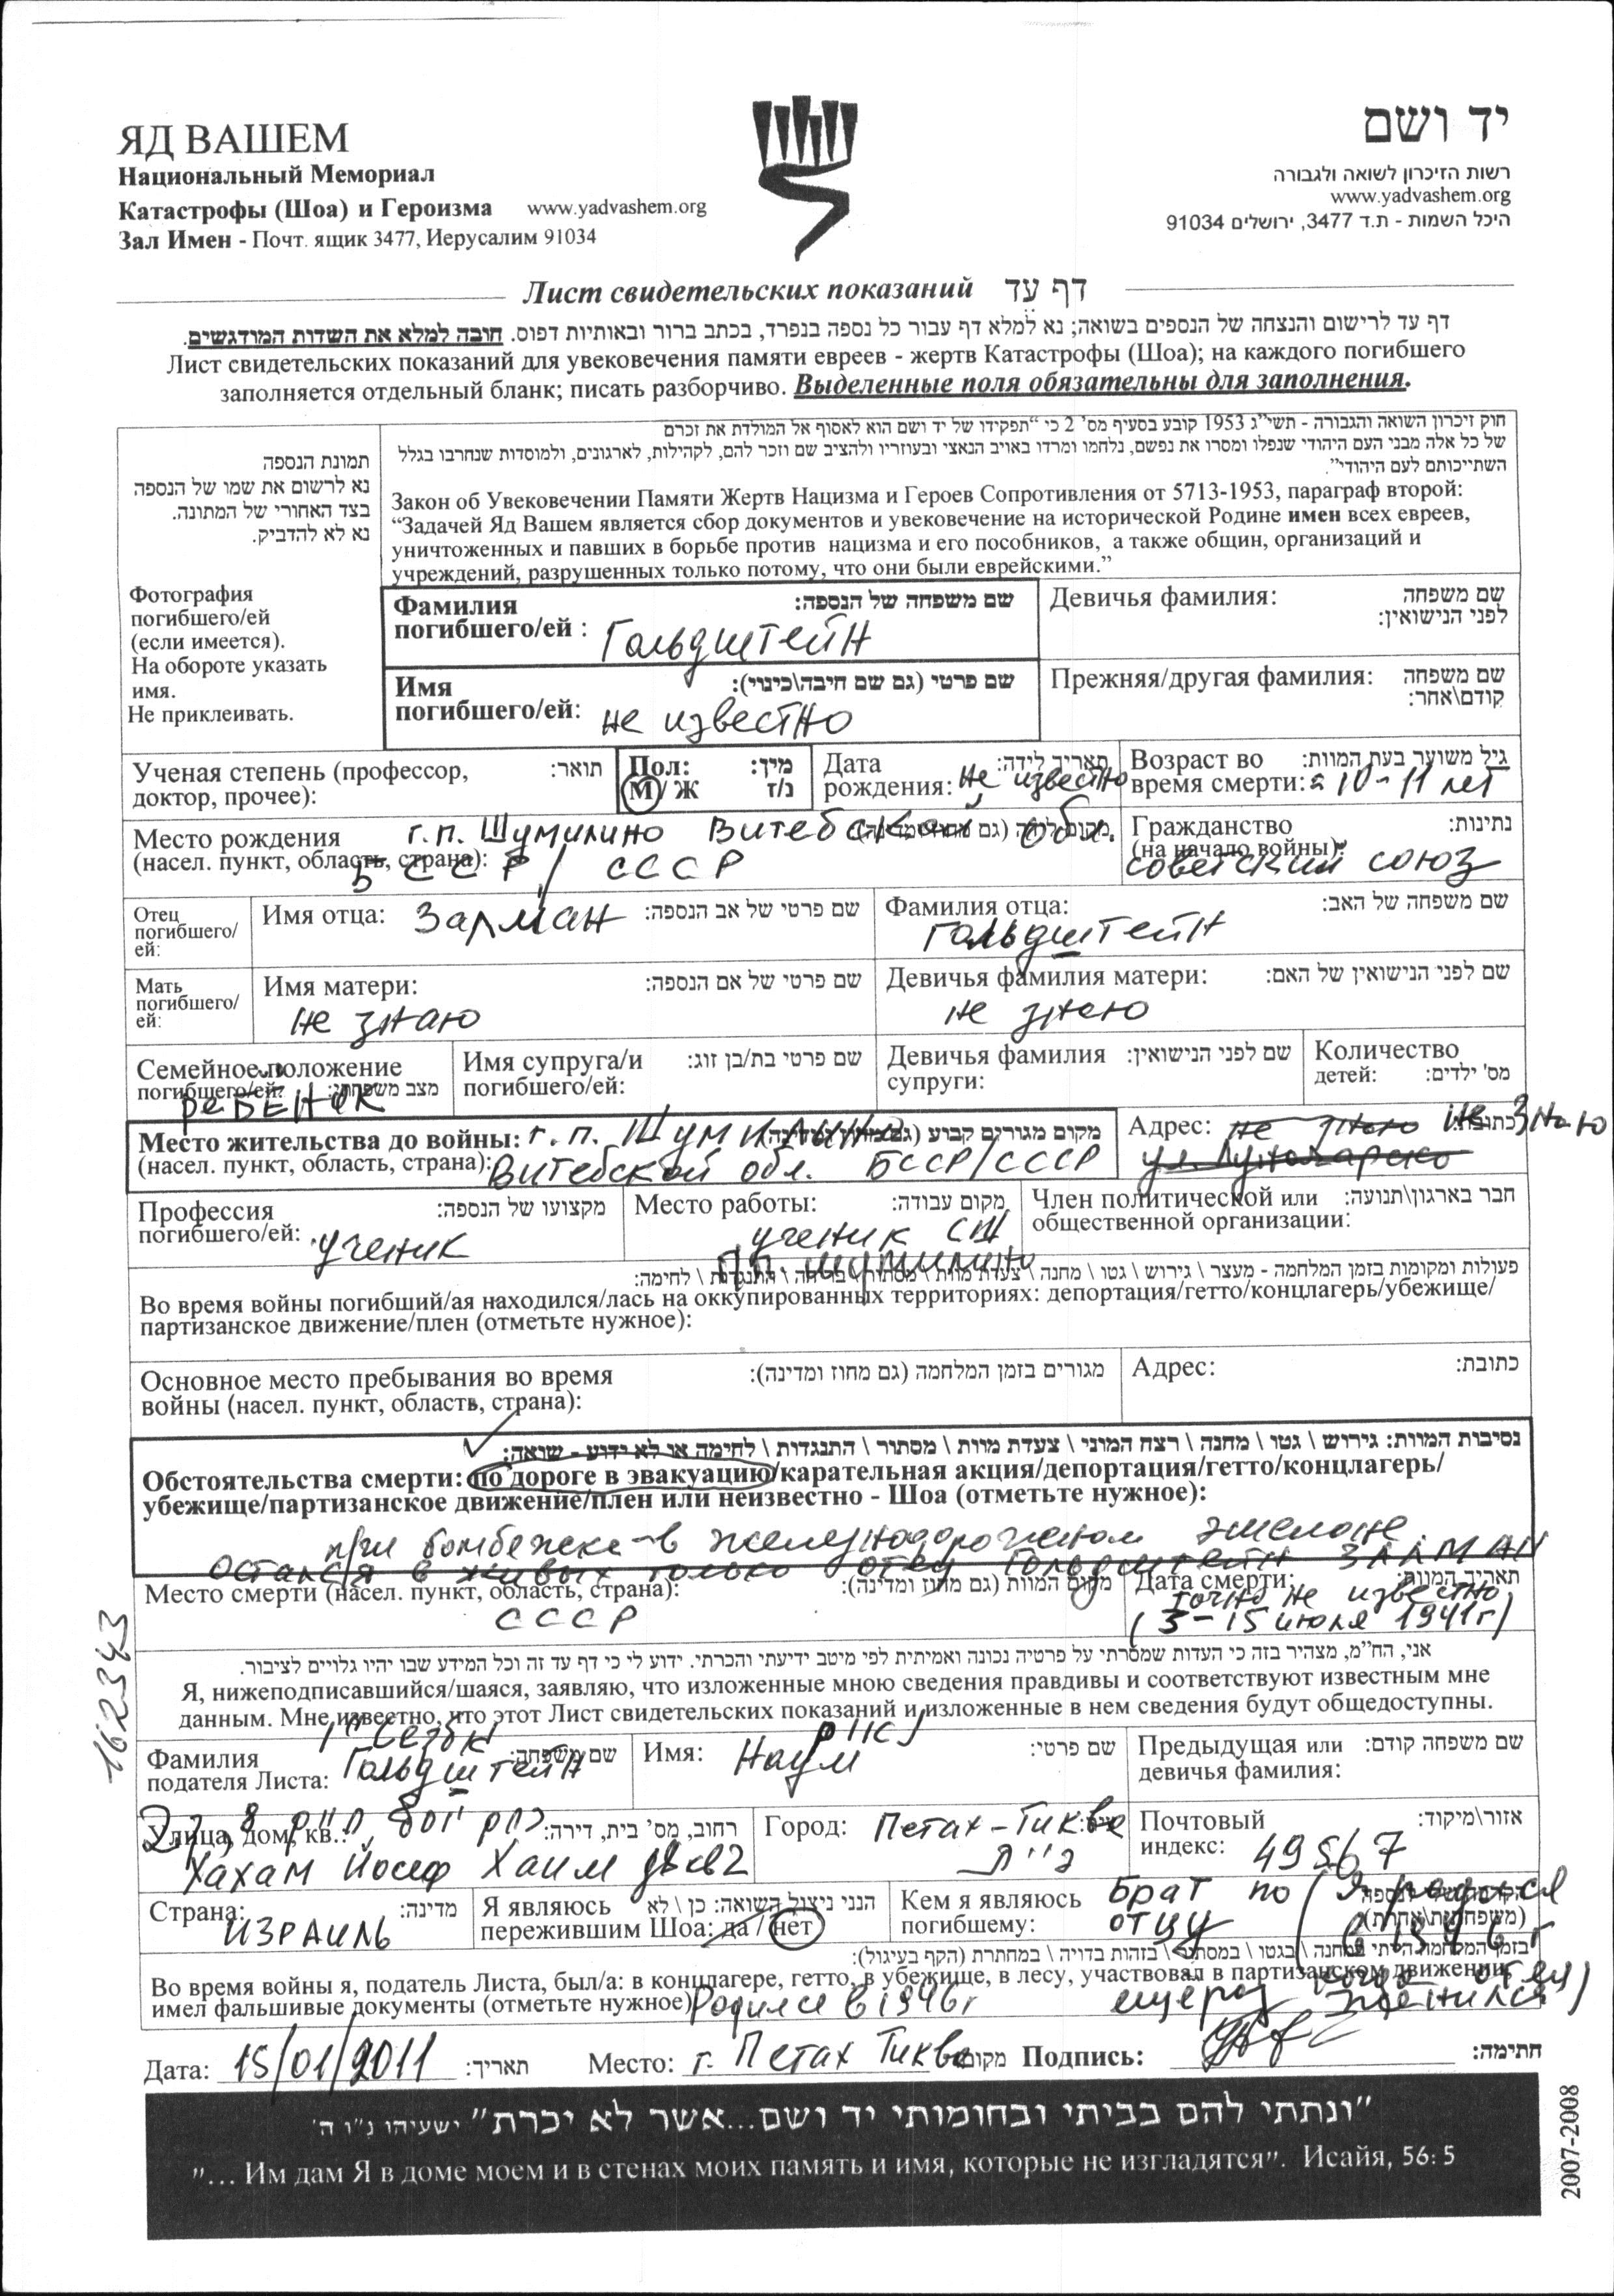 ЯД ВАШЕМ
Национальный Мемориал
Катастрофы (Шоа) и Героизма www.yadvashem.org
Зал Имен - Почт. ящик 3477, Иерусалим 91034
יד ושם
רשות הזיכרון לשואה ולגבורה
www.yadvashem.org
היכל השמות - ת.ד 3477, ירושלים 91034
Лист свидетельских показаний דף עד
דף עד לרישום והנצחה של הנספים בשואה; נא למלא דף עבור כל נספה בנפרד, בכתב ברור ובאותיות דפוס. חובה למלא את השדות המודגשים.
Лист свидетельских показаний для увековечения памяти евреев - жертв Катастрофы (Шоа); на каждого погибшего
заполняется отдельный бланк; писать разборчиво. Выделенные поля обязательны для заполнения.
תמונת הנספה
נא לרשום את שמו של הנספה
בצד האחורי של המתונה.
נא לא להדביק.
Фотография
погибшего/ей
(если имеется).
На обороте указать
имя.
Не приклеивать.
חוק זיכרון השואה והגבורה - תשי"ג 1953 קובע בסעיף מס' 2 כי "תפקידו של יד ושם הוא לאסוף אל המולדת את זכרם
של כל אלה מבני העם היהודי שנפלו ומסרו את נפשם, נלחמו ומרדו באויב הנאצי ובעוזריו ולהציב שם וזכר להם, לקהילות, לארגונים, ולמוסדות שנחרבו בגלל
השתייכותם לעם היהודי".
Закон об Увековечении Памяти Жертв Нацизма и Героев Сопротивления от 5713-1953, параграф второй:
“Задачей Яд Вашем является сбор документов и увековечение на исторической Родине имен всех евреев,
уничтоженных и павших в борьбе против нацизма и его пособников, а также общин, организаций и
учреждений, разрушенных только потому, что они были еврейскими.”
Фамилия שם משפחה של הנספה:
погибшего/ей : Гольдштейн
Девичья фамилия: שם משפחה
לפני הנישואין:
Имя שם פרטי (גם שם חיבה\כינוי):
погибшего/ей: не известно
Прежняя/другая фамилия: שם משפחה
קודם\אחר:
Ученая степень (профессор, תואר:
доктор, прочее):
Пол: מין:
М / Ж נ/ז
Дата תאריך לידה:
рождения: не известно
Возраст во גיל משוער בעת המוות:
время смерти: ≈ 10-11 лет
Место рождения г.п. Шумилино Витебской обл.
(насел. пункт, область, страна): БССР / СССР
Гражданство נתינות:
(на начало войны):
советский союз
Отец
погибшего/
ей:
Имя отца: Залман שם פרטי של אב הנספה:
Фамилия отца: שם משפחה של האב:
Гольдштейн
Мать
погибшего/
ей:
Имя матери: שם פרטי של אם הנספה:
не знаю
Девичья фамилия матери: שם לפני הנישואין של האם:
не знаю
Семейное положение
погибшего/ей: מצב משפחתי:
ребЕНОК
Имя супруга/и שם פרטי בת/בן זוג:
погибшего/ей:
Девичья фамилия שם לפני הנישואין:
супруги:
Количество
детей: מס' ילדים:
Место жительства до войны: г.п. Шумилино
(насел. пункт, область, страна): Витебской обл. БССР/СССР
Адрес: не знаю не знаю כתובת:
ул. Луначарско
Профессия מקצועו של הנספה:
погибшего/ей: ученик
Место работы: מקום עבודה:
ученик СШ
г.п. Шумилино
Член политической или חבר בארגון\תנועה:
общественной организации:
פעולות ומקומות בזמן המלחמה - מעצר \ גירוש \ גטו \ מחנה \ צעדת מוות \ מסתור \ בריחה \ התנגדות \ לחימה:
Во время войны погибший/ая находился/лась на оккупированных территориях: депортация/гетто/концлагерь/убежище/
партизанское движение/плен (отметьте нужное):
Основное место пребывания во время מגורים בזמן המלחמה (גם מחוז ומדינה):
войны (насел. пункт, область, страна):
Адрес: כתובת:
נסיבות המוות: גירוש \ גטו \ מחנה \ רצח המוני \ צעדת מוות \ מסתור \ התנגדות \ לחימה או לא ידוע - שואה:
Обстоятельства смерти: по дороге в эвакуацию/карательная акция/депортация/гетто/концлагерь/
убежище/партизанское движение/плен или неизвестно - Шоа (отметьте нужное):
при бомбежке в железнодорожном эшелоне.
остался в живых только отец Гольдштейн ЗАЛМАН
Место смерти (насел. пункт, область, страна): מקום המוות (גם מחוז ומדינה):
СССР
Дата смерти: תאריך המוות:
точно не известно
(3-15 июля 1941г)
162343
אני, הח"מ, מצהיר בזה כי העדות שמסרתי על פרטיה נכונה ואמיתית לפי מיטב ידיעתי והכרתי. ידוע לי כי דף עד זה וכל המידע שבו יהיו גלויים לציבור.
Я, нижеподписавшийся/шаяся, заявляю, что изложенные мною сведения правдивы и соответствуют известным мне
данным. Мне известно, что этот Лист свидетельских показаний и изложенные в нем сведения будут общедоступны.
Фамилия שם משפחה:
подателя Листа: Гольдштейн
Имя: Наум שם פרטי:
Предыдущая или שם משפחה קודם:
девичья фамилия:
Улица, дом, кв.: רחוב, מס' בית, דירה:
Хахам Йосеф Хаим д8 кв2
Город: Петах-Тиква
Почтовый אזור\מיקוד:
индекс: 49567
Страна: מדינה:
ИЗРАИЛЬ
Я являюсь הנני ניצול השואה: כן \ לא
пережившим Шоа: да / нет
Кем я являюсь Брат по (Я родился
погибшему: отцу в 1946 г
בזמן המלחמה הייתי במחנה \ בגטו \ במסתור \ בזהות בדויה \ במחתרת (הקף בעיגול):
Во время войны я, податель Листа, был/а: в концлагере, гетто, в убежище, в лесу, участвовал в партизанском движении,
имел фальшивые документы (отметьте нужное) Родился в 1946г
когда отец
ещё раз женился)
Дата: 15/01/2011 תאריך: Место: г. Петах Тиква מקום: Подпись: חתימה:
"ונתתי להם בביתי ובחומותי יד ושם...אשר לא יכרת" ישעיהו נ"ו ה'
"... Им дам Я в доме моем и в стенах моих память и имя, которые не изгладятся". Исайя, 56: 5
2007-2008